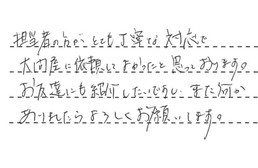 担当者の方がとても丁寧な対応で
大問屋に依頼してよかったと思っております。
お友達にも紹介したいですし、また何か
ありましたらよろしくお願いします。